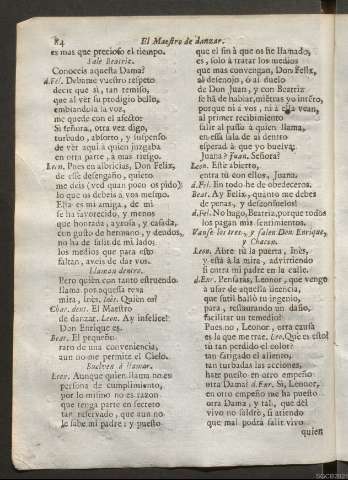 84 El Maestro de danzar.
es mas que precioso el tiempo.
Sale Beatriz.
Conoceis aquesta Dama?
d.Fel. Debame vuestro respeto
decir que si, tan remiso,
que al vèr su prodigio bello,
embiandola la voz,
me quede con el afecto:
Si señora, otra vez digo,
turbado, absorto, y suspenso
de vèr aqui à quien juzgaba
en otra parte, à mas riesgo.
Leon. Pues en albricias, Don Felix,
de esse desengaño, quieto
me deis (ved quan poco os pido)
lo que os debeis à vos mesmo.
Esta es mi amiga, de mi
se ha favorecido, y menos
que honrada, ayrosa, y casada,
con gusto de hermano, y deudos,
no ha de salir de mi lado;
los medios que para esto
faltan, aveis de dar vos.
Llaman dentro.
Pero quien con tanto estruendo
llama por aquessa rexa
mira, Inès. Inès. Quien es?
Chac. dent. El Maestro
de danzar. Leon. Ay infelice!
Don Enrique es.
Beat. El pequeño
rato de una conveniencia,
aun no me permite el Cielo.
Buelven à llamar.
Leon. Aunque quien llama no es
persona de cumplimiento,
por lo mismo no es razon
que tenga parte en secreto
tan reservado, que aun no
le sabe mi padre; y puesto
que el fin à que os he llamado,
es, solo à tratar los medios
que mas convengan, Don Felix,
al desenojo, ò al duelo
de Don Juan, y con Beatriz
se hà de hablar, miētras yo intēto,
porque ni à vos, ni à ella vean,
al primer recibimiento
salir al passo à quien llama,
en essa sala de aì dentro
esperad à que yo buelva:
Juana? Juan. Señora?
Leon. Este abierto,
entra tù con ellos, Juana.
d.Fel. En todo he de obedeceros.
Beat. Ay Felix, quanto me debes
de penas, y desconsuelos!
d.Fel. No hago, Beatriz, porque todos
los pagan mis sentimientos.
Vanse los tres, y salen Don Enrique,
y Chacon.
Leon. Abre tù la puerta, Inès,
y està à la mira, advirtiendo
si entra mi padre en la calle.
d.Enr. Pensaràs, Leonor, que vengo
à usar de aquella licencia,
que sutil hallò tu ingenio,
para, restaurando un daño,
facilitar un remedio?
Pues no, Leonor, otra causa
es la que me trae. Leo. Què es esto?
tù tan perdido el color?
tan fatigado el aliento,
tan turbadas las acciones,
hate puesto en otro empeño
otra Dama? d.Enr. Si, Leonor,
en otro empeño me ha puesto
otra Dama, y tal, que dèl
vivo no saldrè, si atiendo
que mal podrà salir vivo
quien